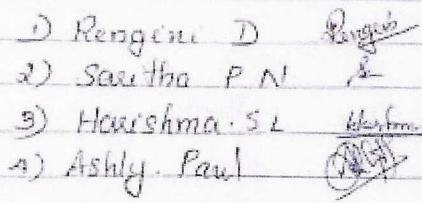 1) Rengini D
2) Saritha P N
3) Harishma. S L
4) Ashly. Paul